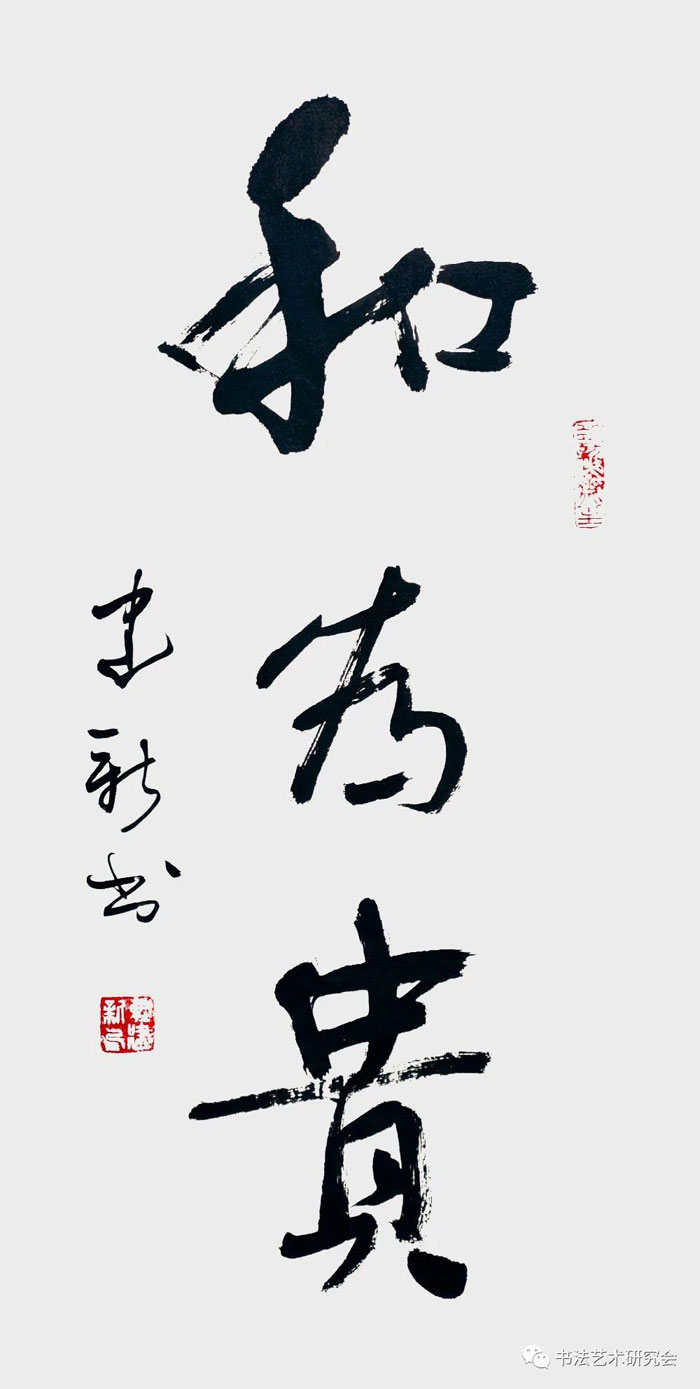 和為貴
建新书
书法艺术研究会